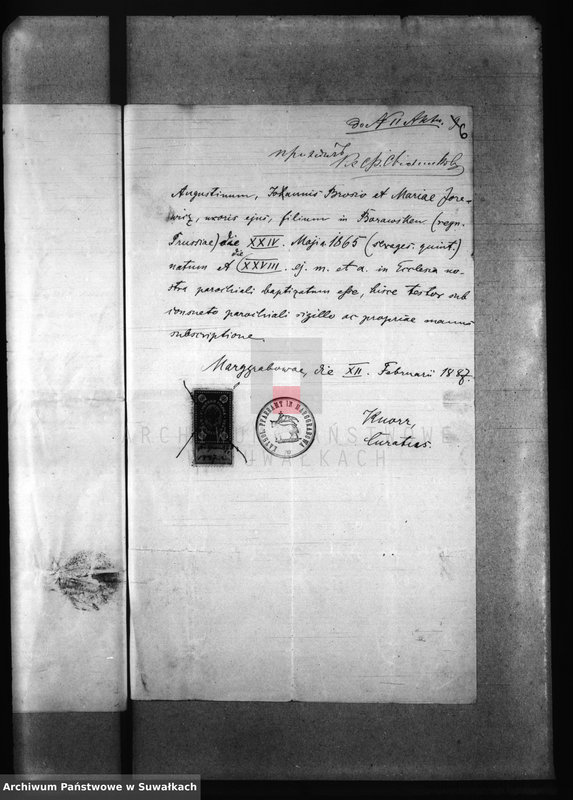 do N 11 Aktu. 96
Augustinum, Johannis Brosio et Mariae Jore-
wicz, uxoris ejus, filium in Barawsken (regn.
Prussiae) die XXIV. Maji a 1865 (sexages. quint.)
natum et die XXVIII. ej. m. et a. in Ecclesia no-
stra parochiali baptizatum esse, hisce testor sub
consueto parochiali sigillo ac propriae manus
subscriptione.
Marggrabowae, die XII. Februarii 1887.
Knorr,
Curatus.
KATHOL. PFARRAMT IN MARGGRABOWA
ARCHIWUM PAŃSTWOWE
W SUWAŁKACH
Archiwum Państwowe w Suwałkach